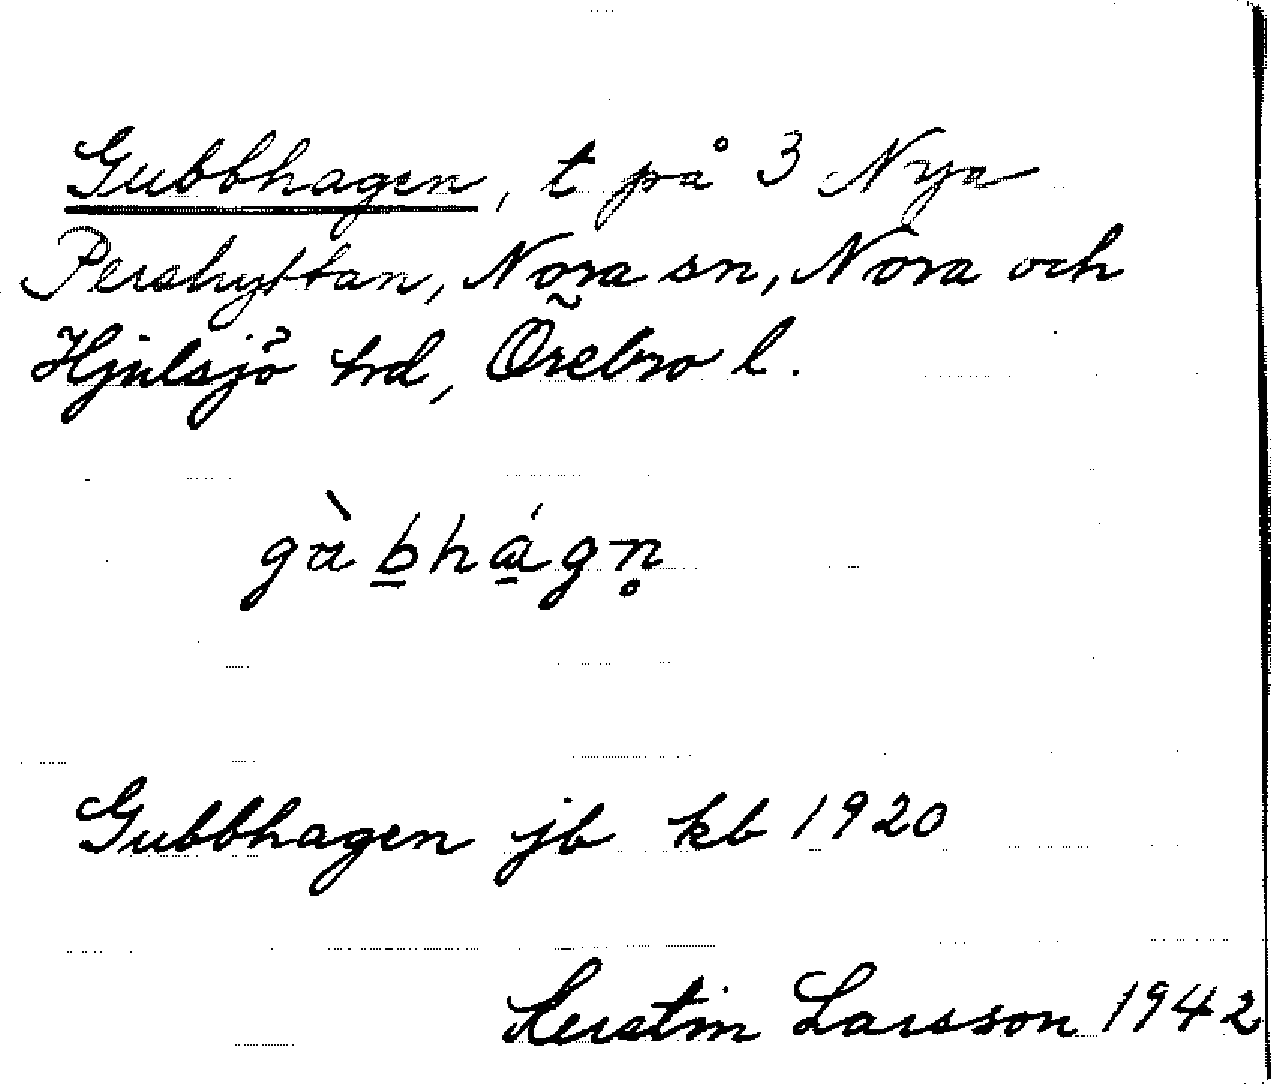 Gubbhagen, t på 3 Nya
Pershyttan, Nora sn, Nora och
Hjulsjö hrd, Örebro l.
gàb̲há̲gn̥
Gubbhagen jb kb 1920
Kerstin Larsson 1942